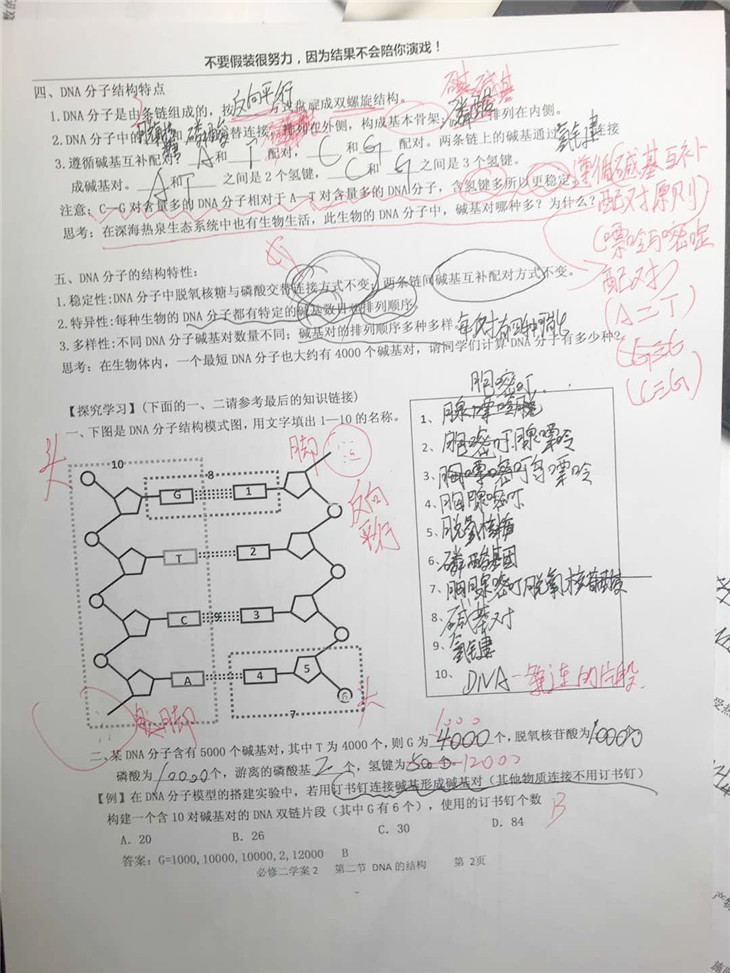 不要假装很努力，因为结果不会陪你演戏！
四、DNA 分子结构特点
1.DNA 分子是由条链组成的，按反向平行方式盘旋成双螺旋结构。
碱基
2.DNA 分子中的脱氧核糖和磷酸交替连接，排列在外侧，构成基本骨架；排列在内侧。
3.遵循碱基互补配对：A和T配对，C和G配对。两条链上的碱基通过氢键连接
成碱基对。A和T之间是2个氢键，C和G之间是3个氢键。
注意：C—G对含量多的DNA分子相对于A—T对含量多的DNA分子，含氢键多所以更稳定。
思考：在深海热泉生态系统中也有生物生活，此生物的DNA分子中，碱基对哪种多？为什么？
遵循碱基互补
配对原则
(嘌呤与嘧啶
配对)
(A=T)
(G≡C
(C≡G)
五、DNA 分子的结构特性：
1.稳定性:DNA分子中脱氧核糖与磷酸交替连接方式不变；两条链间碱基互补配对方式不变。
2.特异性:每种生物的DNA分子都有特定的碱基数目和排列顺序。
3.多样性:不同DNA分子碱基对数量不同；碱基对的排列顺序多种多样。
思考：在生物体内，一个最短DNA分子也大约有4000个碱基对，请同学们计算DNA分子有多少种？
【探究学习】(下面的一、二请参考最后的知识链接)
一、下图是DNA分子结构模式图，用文字填出1—10的名称。
头
脚
反向
平行
10
8
G
1
T
2
C
9
3
A
4
5
6
7
头
脚
胞嘧啶
1、
2、腺嘌呤
3、鸟嘌呤
4、胸腺嘧啶
5、脱氧核糖
6、磷酸基团
7、胸腺嘧啶脱氧核苷酸
8、碱基对
9、氢键
10、DNA一条链的片段
二、某DNA分子含有5000个碱基对,其中T为4000个,则G为 4000 个,脱氧核苷酸为10000个,
1000
磷酸为10000个，游离的磷酸基2个，氢键为12000
【例】在DNA分子模型的搭建实验中，若用订书钉连接碱基形成碱基对（其他物质连接不用订书钉）
构建一个含10对碱基对的DNA双链片段（其中G有6个），使用的订书钉个数 B
A. 20 B. 26 C. 30 D. 84
答案：G=1000,10000,10000,2,12000 B
必修二学案2 第二节 DNA的结构 第 2页